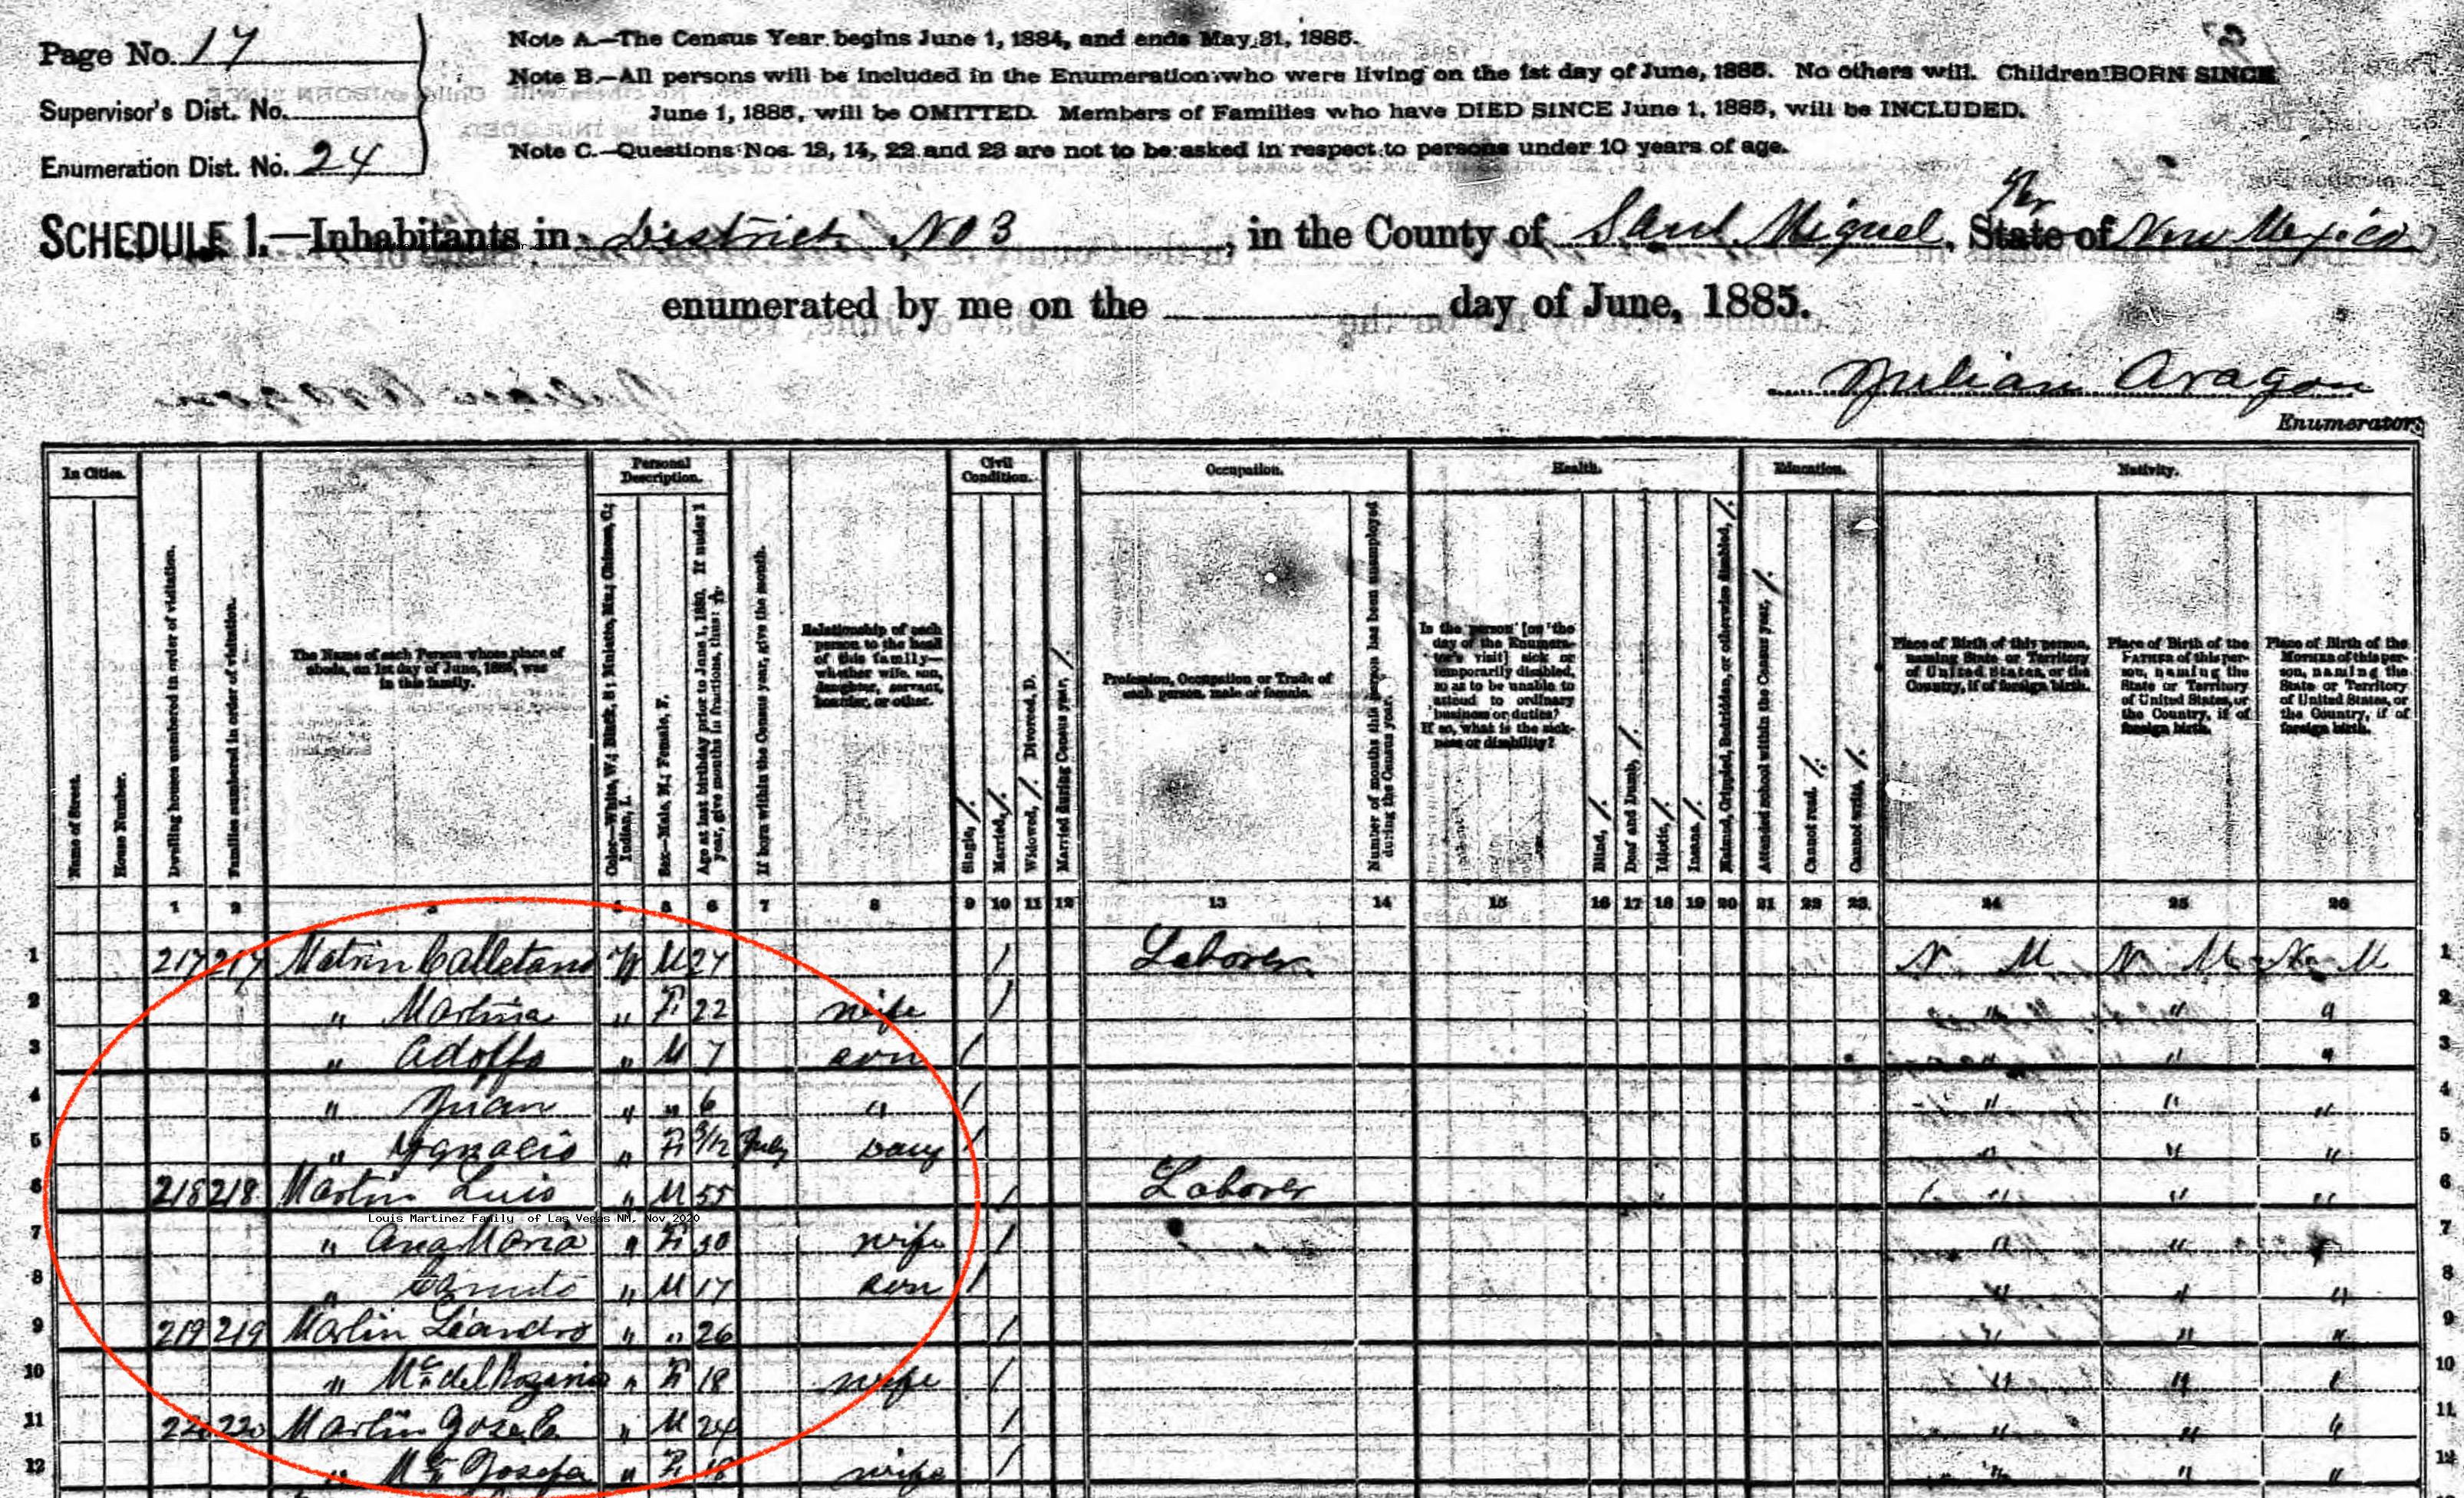 Page No. 17
Supervisor's Dist. No.
Enumeration Dist. No. 24
Note A.—The Census Year begins June 1, 1884, and ends May 31, 1885.
Note B.—All persons will be included in the Enumeration who were living on the 1st day of June, 1885. No others will. Children BORN SINCE
June 1, 1885, will be OMITTED. Members of Families who have DIED SINCE June 1, 1885, will be INCLUDED.
Note C.—Questions Nos. 13, 14, 22 and 23 are not to be asked in respect to persons under 10 years of age.
SCHEDULE 1.—Inhabitants in District No 3, in the County of Sant Miguel, State of New Mexico
enumerated by me on the day of June, 1885.
Julian Aragon
Enumerator.
In Cities.
Personal Description.
Civil Condition.
Occupation.
Health.
Education.
Nativity.
Name of Street.
House Number.
Dwelling houses numbered in order of visitation.
Families numbered in order of visitation.
The Name of each Person whose place of abode, on 1st day of June, 1885, was in this family.
Color—White, W.; Black, B.; Mulatto, Mu.; Chinese, C.; Indian, I.
Sex—Male, M.; Female, F.
Age at last birthday prior to June 1, 1885. If under 1 year, give months in fractions, thus:
If born within the Census year, give the month.
Relationship of each person to the head of this family—whether wife, son, daughter, servant, boarder, or other.
Single, /.
Married, /.
Widowed, /. Divorced, D.
Married during Census year, /.
Profession, Occupation or Trade of each person, male or female.
Number of months this person has been unemployed during the Census year.
Is the person [on the day of the Enumerator's visit] sick or temporarily disabled, so as to be unable to attend to ordinary business or duties? If so, what is the sickness or disability?
Blind, /.
Deaf and Dumb, /.
Idiotic, /.
Insane, /.
Maimed, Crippled, Bedridden, or otherwise disabled, /.
Attended school within the Census year, /.
Cannot read, /.
Cannot write, /.
Place of Birth of this person, naming State or Territory of United States, or the Country, if of foreign birth.
Place of Birth of the FATHER of this person, naming the State or Territory of United States, or the Country, if of foreign birth.
Place of Birth of the MOTHER of this person, naming the State or Territory of United States, or the Country, if of foreign birth.
1 2 3 4 5 6 7 8 9 10 11 12 13 14 15 16 17 18 19 20 21 22 23 24 25 26
1 217 217 Matrin Calletano W M 27 / Laborer N. M. N. M. N. M 1
2 " Martina " F 22 wife / " " " 2
3 " Adolfo " M 7 son / " " " 3
4 " Juan " " 6 " / " " " 4
5 " Ygnacio " F /12 July Daug / " " " 5
6 218 218 Martin Luis " M 55 / Laborer " " " 6
Louis Martinez Family of Las Vegas NM, Nov 2020
7 " Ana Maria " F 30 wife / " " " 7
8 " " M 17 son / " " " 8
9 219 219 Martin Leandro " " 26 / " " " 9
10 " Ma del Rozario " F 18 wife / " " " 10
11 220 220 Martin Jose " M 24 / " " " 11
12 " Ma Josefa " F 18 wife / " " " 12